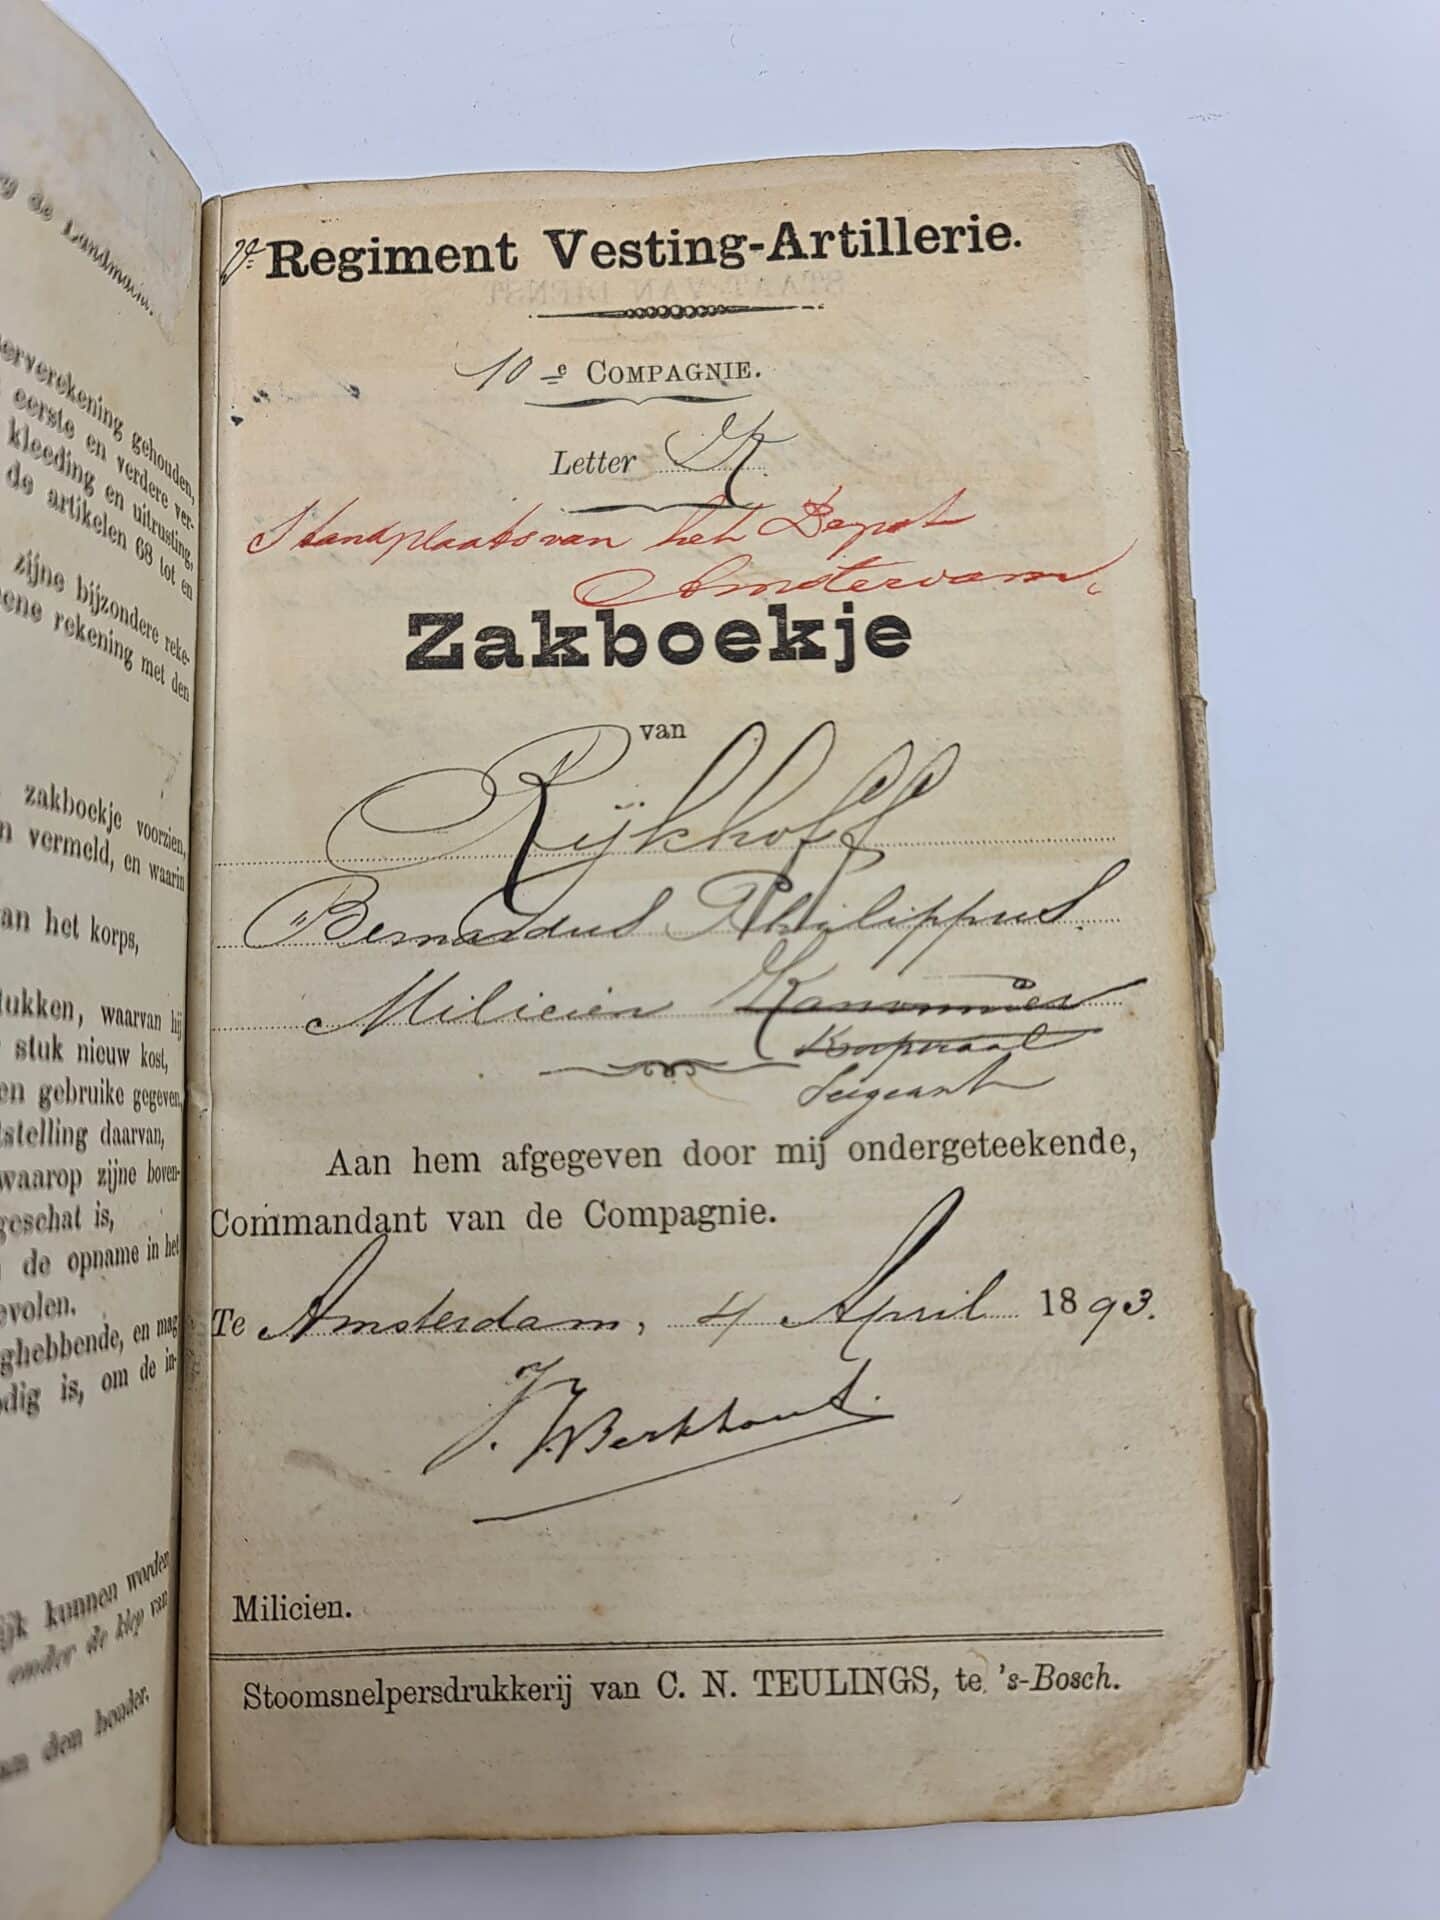 ng de Landmacht.
erverekening gehouden,
eerste en verdere ver-
kleeding en uitrusting,
de artikelen 68 tot en
zijne bijzondere reke-
eene rekening met den
zakboekje voorzien,
n vermeld, en waarin
van het korps,
tukken, waarvan hij
stuk nieuw kost,
en gebruike gegeven,
tstelling daarvan,
waarop zijne boven-
geschat is,
de opname in het
evolen.
nghebbende, en mag
odig is, om de in-
ijk kunnen worden
onder de klep van
aan den houder.
2e Regiment Vesting-Artillerie.
10e COMPAGNIE.
Letter K.
Standplaats van het Depot
Amsterdam.
Zakboekje
van
Rijkhoff
Bernardus Philippus.
Milicien Kanonnier
Korporaal
Sergeant
Aan hem afgegeven door mij ondergeteekende,
Commandant van de Compagnie.
Te Amsterdam, 4 April 1893.
J. J. Berkhout.
Milicien.
Stoomsnelpersdrukkerij van C. N. TEULINGS, te 's-Bosch.